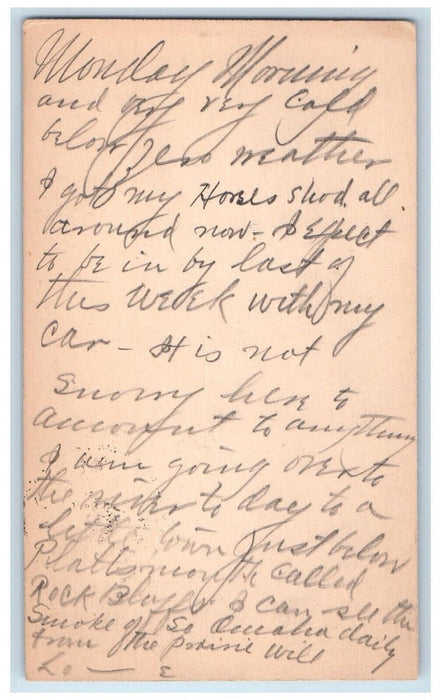 Monday Morning
and very very Cold
below zero weather
I got my Horses Shod all
around now - I Expect
to be in by last of
this Week with my
Car - It is not
Snowy here to
amount to anything
I am going over to
the river to day to a
little town just below
Plattsmouth called
Rock Bluffs I can see the
Smoke of So Omaha daily
from the Prairie Will